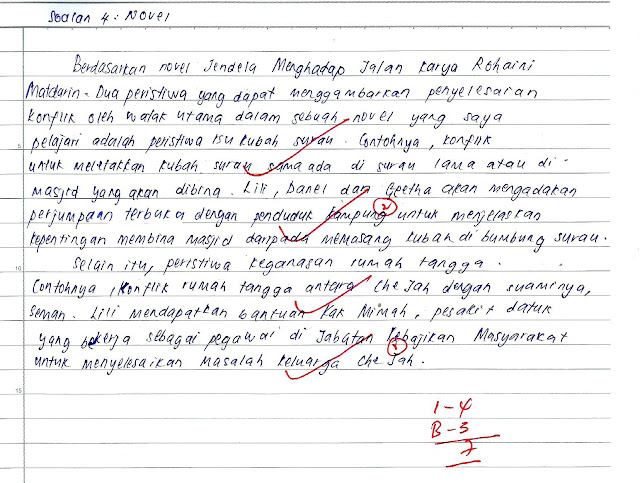 Soalan 4 : Novel
Berdasarkan novel Jendela Menghadap Jalan karya Rohaini
Matdarin. Dua peristiwa yang dapat menggambarkan penyelesaian
konflik oleh watak utama dalam sebuah novel yang saya
5
pelajari adalah peristiwa isu kubah surau. Contohnya, konflik
untuk meletakkan kubah surau sama ada di surau lama atau di
masjid yang akan dibina. Lili, Danel dan Geetha akan mengadakan
2
perjumpaan terbuka dengan penduduk kampung untuk menjelaskan
kepentingan membina masjid daripada memasang kubah di bumbung surau.
10
Selain itu, peristiwa keganasan rumah tangga.
Contohnya, konflik rumah tangga antara Che Jah dengan suaminya,
Seman. Lili mendapatkan bantuan Kak Mimah, pesakit datuk
yang bekerja sebagai pegawai di Jabatan Kebajikan Masyarakat
untuk menyelesaikan masalah keluarga Che Jah.
15
1-4
B-3
7